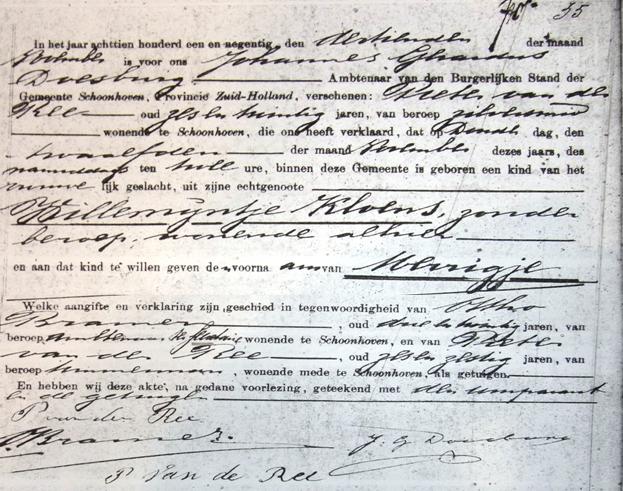 35
In het jaar achttien honderd een en negentig, den dertienden der maand
is voor ons Johannes
Doesburg Ambtenaar van den Burgerlijken Stand der
Gemeente Schoonhoven, Provincie Zuid-Holland, verschenen: Pieter van der
Ree oud zes en twintig jaren, van beroep zilversmid
wonende te Schoonhoven, die ons heeft verklaard, dat op Donder dag, den
twaalfden der maand dezes jaars, des
namiddags ten ure, binnen deze Gemeente is geboren een kind van het
lijk geslacht, uit zijne echtgenoote
Willemijntje Kloens, zonder
beroep, wonende alhier
en aan dat kind te willen geven de voorna am van
Welke aangifte en verklaring zijn geschied in tegenwoordigheid van Ottho
Kramer, oud drie en twintig jaren, van
beroep wonende te Schoonhoven, en van Pieter
van der Ree, oud zes en zestig jaren, van
beroep, wonende mede te Schoonhoven, als getuigen.
En hebben wij deze akte, na gedane voorlezing, geteekend met den comparant
en de getuigen
P van der Ree
Kramer. J. G. Doesburg
P van de Ree